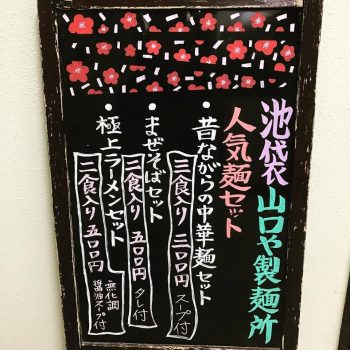 池袋山口や製麺所
人気麺セット
・昔ながらの中華麺セット
三食入り 三〇〇円 スープ付
・まぜそばセット
二食入り 五〇〇円 タレ付
・極上ラーメンセット
二食入り 五〇〇円 無化調醤油スープ付